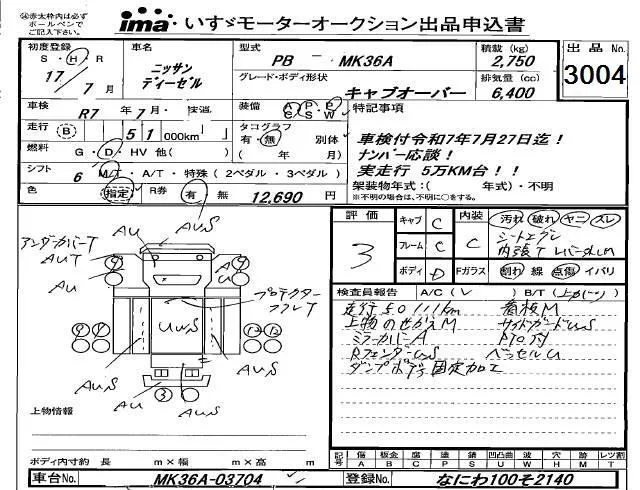 ㊟赤太枠内は必ず
ボールペンで
ご記入下さい。
ima いすゞモーターオークション出品申込書
初度登録
S・H・R
17/7月
車名
ニッサン
ディーゼル
型式
PB － MK36A
積載 (kg)
2,750
出品No.
3004
グレード・ボディ形状
キャブオーバー
排気量 (cc)
6,400
車検
R7 年 7 月・
装備
A/S P/S P/W
特記事項
走行 B 51 000km
タコグラフ
有・無 別体
( 年 月)
車検付令和7年7月27日迄！
ナンバー応談！
実走行 5万KM台！！
燃料
G・D・HV 他( )
シフト
6 M/T・A/T・特殊 (2ペダル・3ペダル)
架装物年式:( 年式)・不明
※不明の場合は、不明に○をする。
色
指定
R券
有 無 12,690 円
評価
3
キャブ C
フレーム C
ボディ D
内装 C
Fガラス
汚れ 破れ ヤニ スレ
割れ 線 点傷 イバリ
アンダーカバーT
AUT
AU
AU
AUS
AU
プロテクター
UWS
AUS
AUS
AU
AUS
3
検査員報告 A/C( ) B/T( )
走行50111km
看板M
上物のせかえM
ミラーカバーA
RフェンダーUS
ダンプボデー固定加工
上物情報
ボディ内寸約 長 m×幅 m×高 m
記号
傷 A
板金 B
腐 C
塗 P
錆 S
凹凸曲 U
波 W
穴 H
跡 M
レツ割 T
車台No.
MK36A-03704
登録No.
なにわ100そ2140